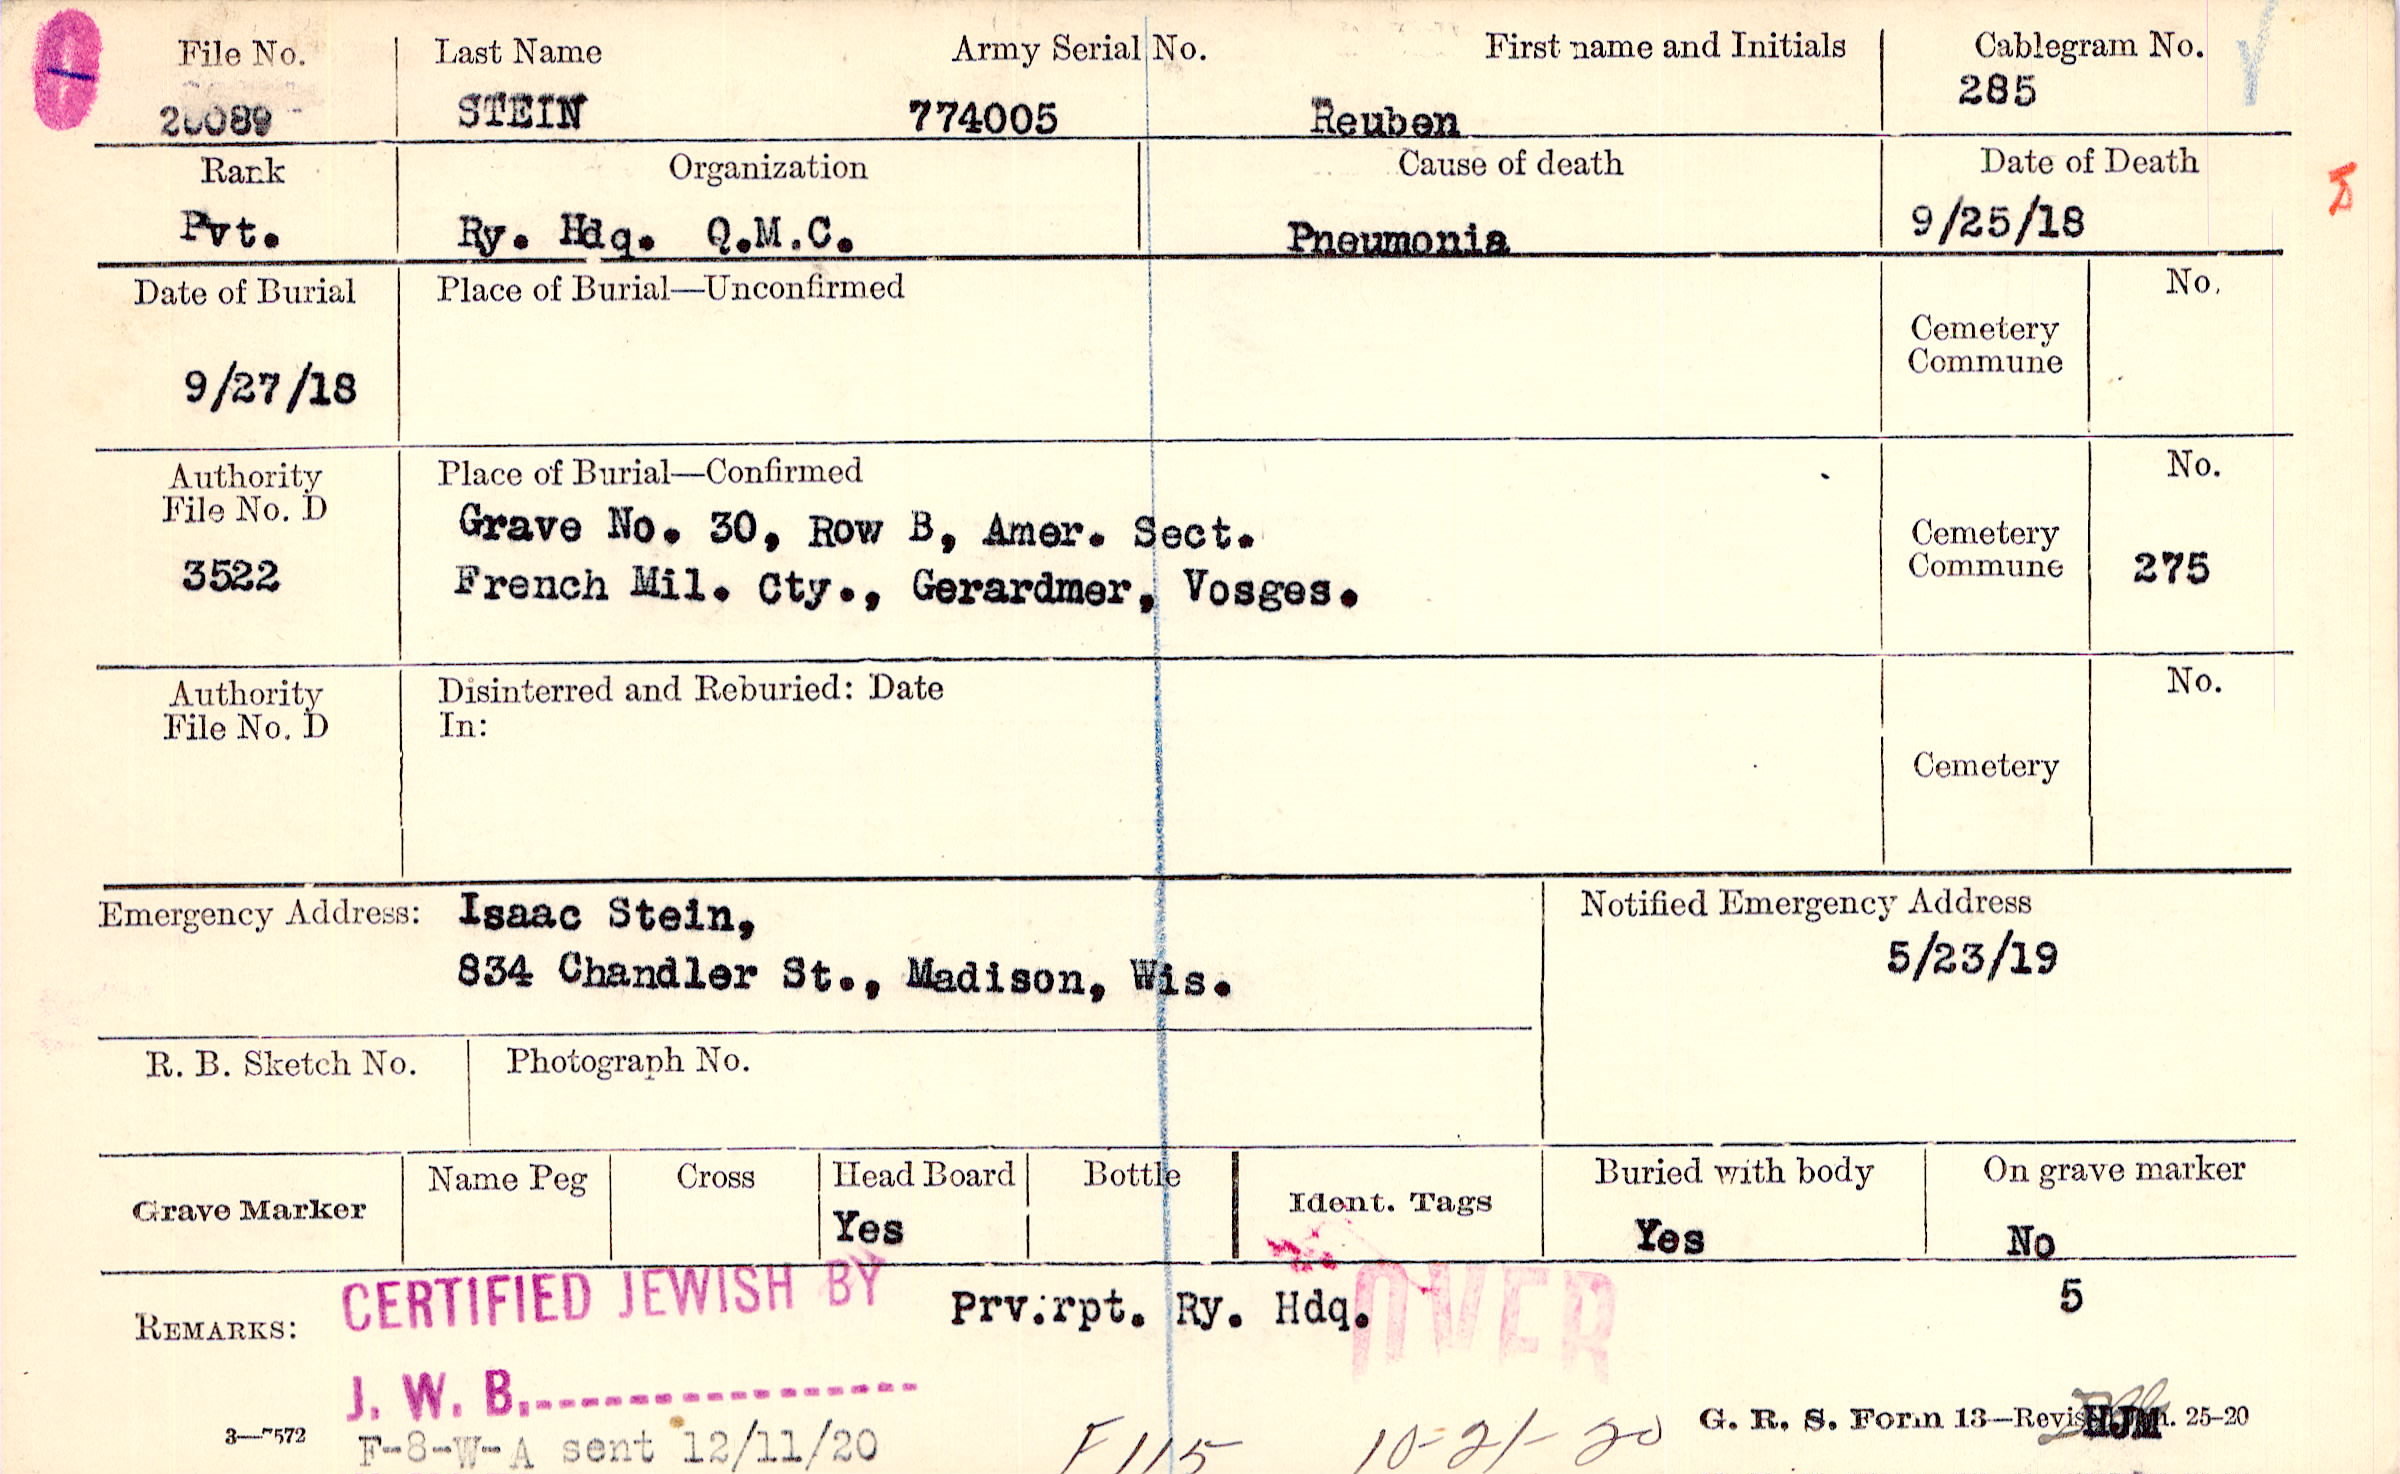 File No. Last Name Army Serial No. First name and Initials Cablegram No.
STEIN 774005 Reuben 285
Rank Organization Cause of death Date of Death
Pvt. Ry. Hdq. Q.M.C. Pneumonia 9/25/18
Date of Burial Place of Burial—Unconfirmed No.
Cemetery
Commune
9/27/18
Authority Place of Burial—Confirmed No.
File No. D
Grave No. 30, Row B, Amer. Sect. Cemetery
3522 French Mil. Cty., Gerardmer, Vosges. Commune 275
Authority Disinterred and Reburied: Date No.
File No. D In:
Cemetery
Emergency Address: Isaac Stein, Notified Emergency Address
834 Chandler St., Madison, Wis. 5/23/19
R. B. Sketch No. Photograph No.
Grave Marker Name Peg Cross Head Board Bottle Ident. Tags Buried with body On grave marker
Yes Yes No
REMARKS: CERTIFIED JEWISH BY Prv.rpt. Ry. Hdq. OVER 5
J. W. B.
3—7572 G. R. S. Form 13— HJM 25-20
F-8-W-A sent 12/11/20 F115 10-21-20